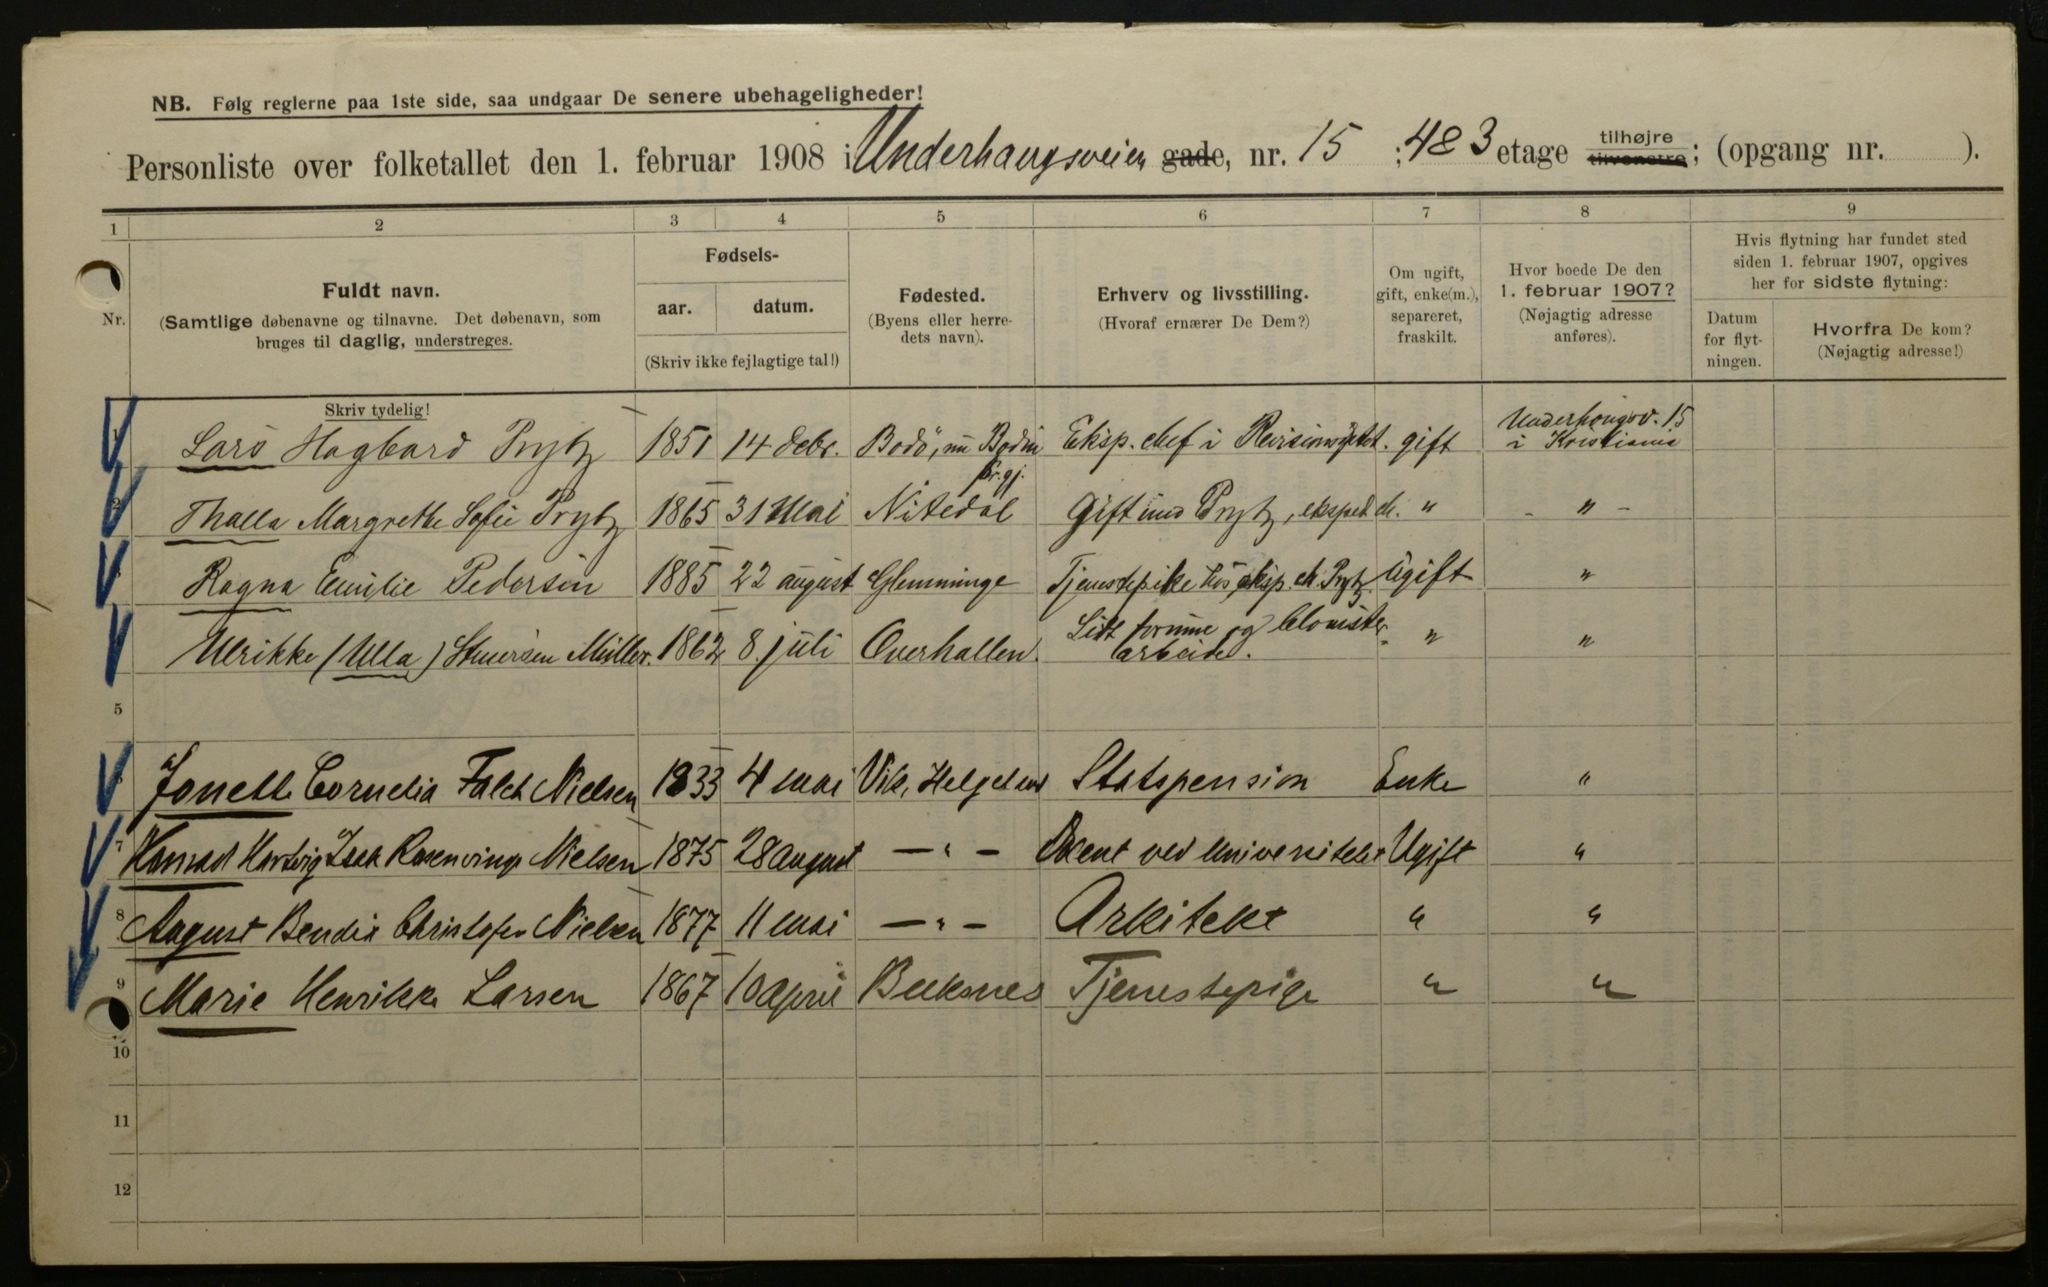 NB. Følg reglerne paa 1ste side, saa undgaar De senere ubehageligheder!
Personliste over folketallet den 1. februar 1908 i Underhaugsveien gade, nr. 15 ; 4 & 3 etage tilhøjre tilvenstre; (opgang nr. ).
1 2 3 4 5 6 7 8 9
Nr.
Fuldt navn.
(Samtlige døbenavne og tilnavne. Det døbenavn, som
bruges til daglig, understreges.
Skriv tydelig!
Fødsels-
aar. datum.
(Skriv ikke fejlagtige tal!)
Fødested.
(Byens eller herre-
dets navn).
Erhverv og livsstilling.
(Hvoraf ernærer De Dem?)
Om ugift,
gift, enke(m.),
separeret,
fraskilt.
Hvor boede De den
1. februar 1907?
(Nøjagtig adresse
anføres).
Hvis flytning har fundet sted
siden 1. februar 1907, opgives
her for sidste flytning:
Datum
for flyt-
ningen.
Hvorfra De kom?
(Nøjagtig adresse!)
1 Lars Hagbard Prytz 1851 14 debr. Bodö, nu Bodin pr.gj. Eksp. chef i Revisionsdptet. gift Underhaugsv. 15 i Kristiania
2 Thalla Margrethe Sofie Prytz 1865 31 Mai Nitedal Gift med Prytz, eksped ch. " - " -
3 Ragna Emilie Pedersen 1885 22 august Glemminge Tjenestepike hos eksp. ch. Prytz Ugift "
Ulrikke (Ulla) Müller. 1862 8. juli Overhallen. Lidt formue og blomster arbeide. " "
5
6 Jonette Cornelia Falch Nielsen 1833 4 mai Vik, Helgeland Statspension Enke "
7 Konrad Hartvig Isak Rosenvinge Nielsen 1875 28 august — " — Docent ved Universitetet Ugift "
8 August Bendix Christofer Nielsen 1877 11 mai — " — Arkitekt " "
9 Marie Henrikke Larsen 1867 10 april Tjenestepige " "
10
11
12